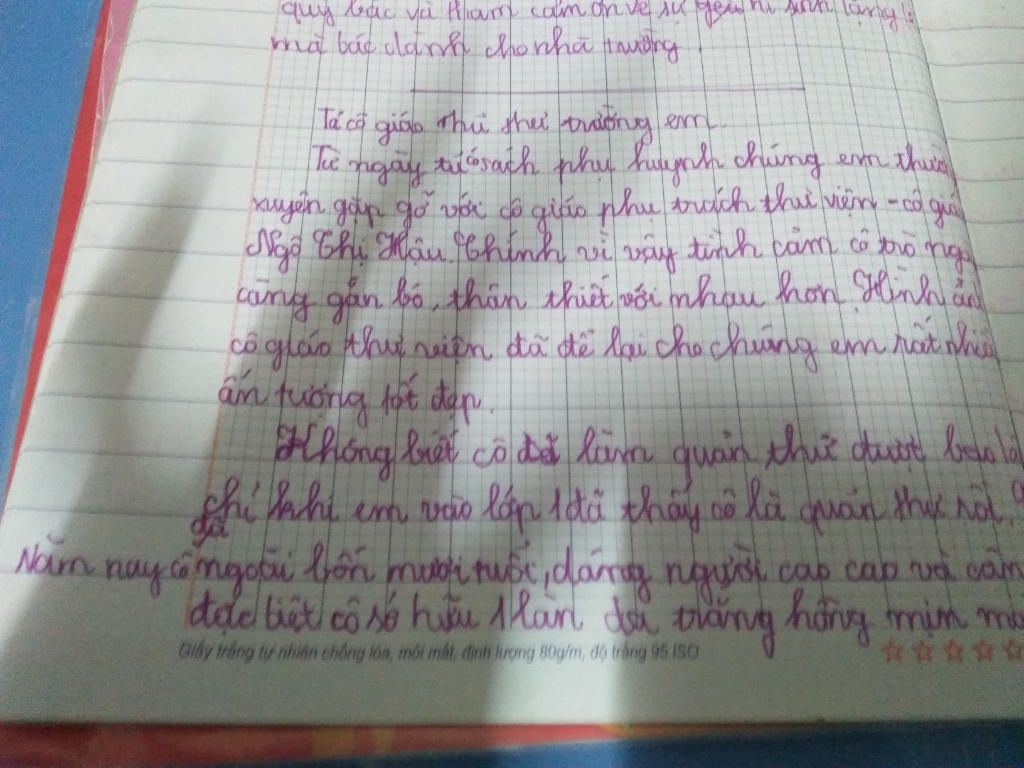 quý bác và thầm cảm ơn về sự
mà bác dành cho nhà trường
Tả cô giáo thủ thư trường em.
Từ ngày tủ sách phụ huynh chúng em thườ
xuyên gặp gỡ với cô giáo phụ trách thư viện - cô giá
Ngô Thị Hậu. Chính vì vậy tình cảm cô trò ngà
càng gắn bó, thân thiết với nhau hơn. Hình ản
cô giáo thư viện đã để lại cho chúng em rất nhiề
ấn tượng tốt đẹp.
Không biết cô đã làm quản thư được bao lâ
chỉ khi em vào lớp 1 đã thấy cô là quản thư rồi.
Năm nay cô đã ngoài bốn mươi tuổi, dáng người cao cao và cân
đặc biệt cô sở hữu 1 làn da trắng hồng mịn mà
Giấy trắng tự nhiên chống lóa, mỏi mắt, định lượng 80g/m, độ trắng 95 ISO